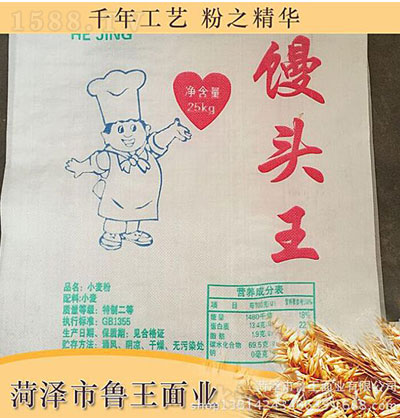 千年工艺 粉之精华
HE JING
净含量
25kg
馒头王
品名：小麦粉
配料：小麦
质量等级：特制二等
执行标准：GB1355
生产日期、保质期：见合格证
贮存方法：通风、阴凉、干燥、无污染处
营养成分表
项目 每100克(g) 营养素参考值%
能量 1480千焦 18%
蛋白质 13.4克(g) 22%
脂肪 1.9克(g)
碳水化合物 69.5克(g)
钠 0毫克
菏泽市鲁王面业
菏泽市鲁王面业有限公司